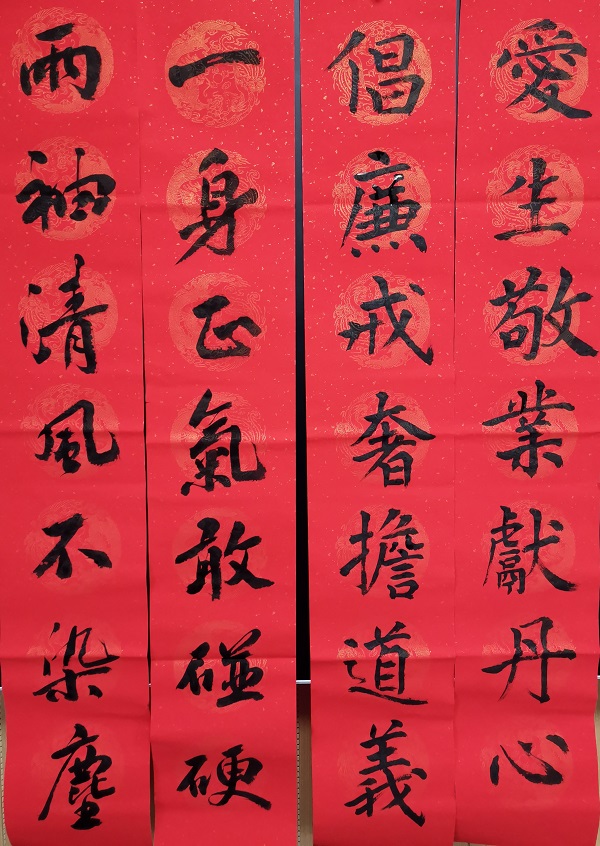 愛生敬業獻丹心
倡廉戒奢擔道義
一身正氣敢碰硬
兩袖清風不染塵